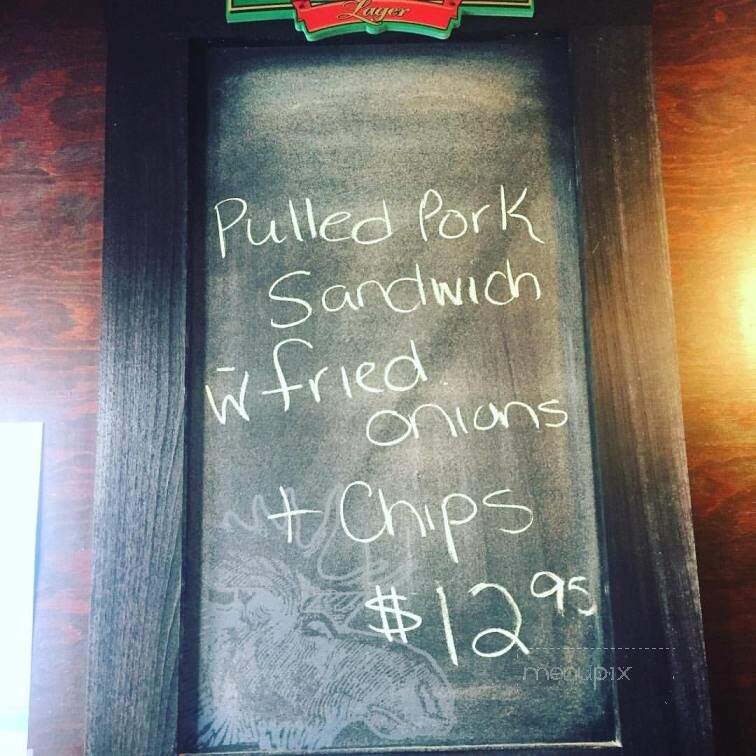 Lager
Pulled Pork
Sandwich
w̄ fried
onions
+ Chips
$12.95
menupix